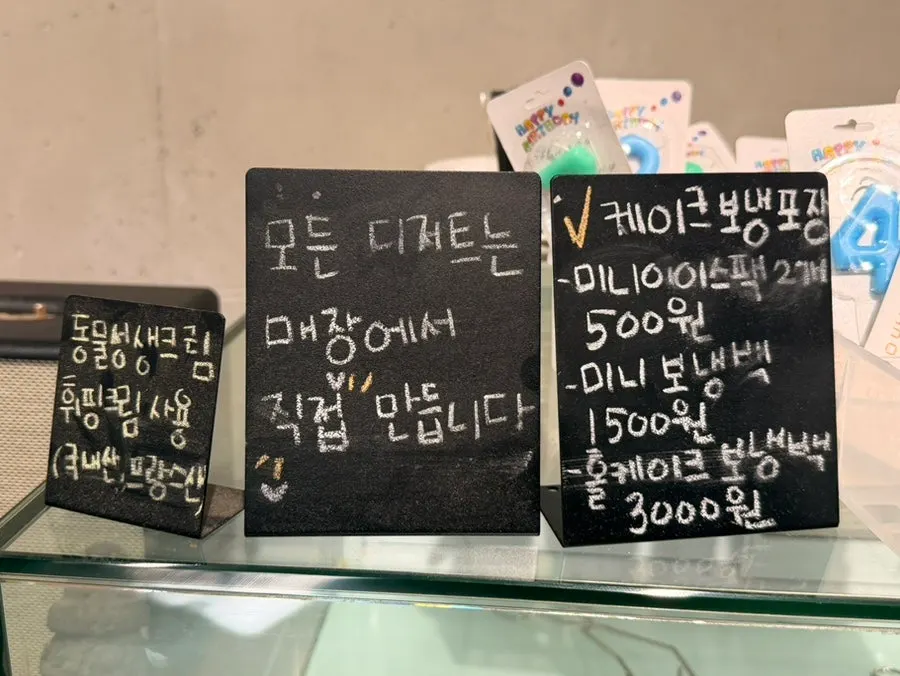 동물성생크림
휘핑크림 사용
(국내산, 프랑스산
모든 디저트는
매장에서
직접 만듭니다
✓ 케이크 보냉포장
-미니아이스팩 2개
500원
-미니 보냉백
1500원
-홀케이크 보냉백
3000원
HAPPY
BIRTHDAY
HAPPY
BIRTHDAY
HAPPY
4